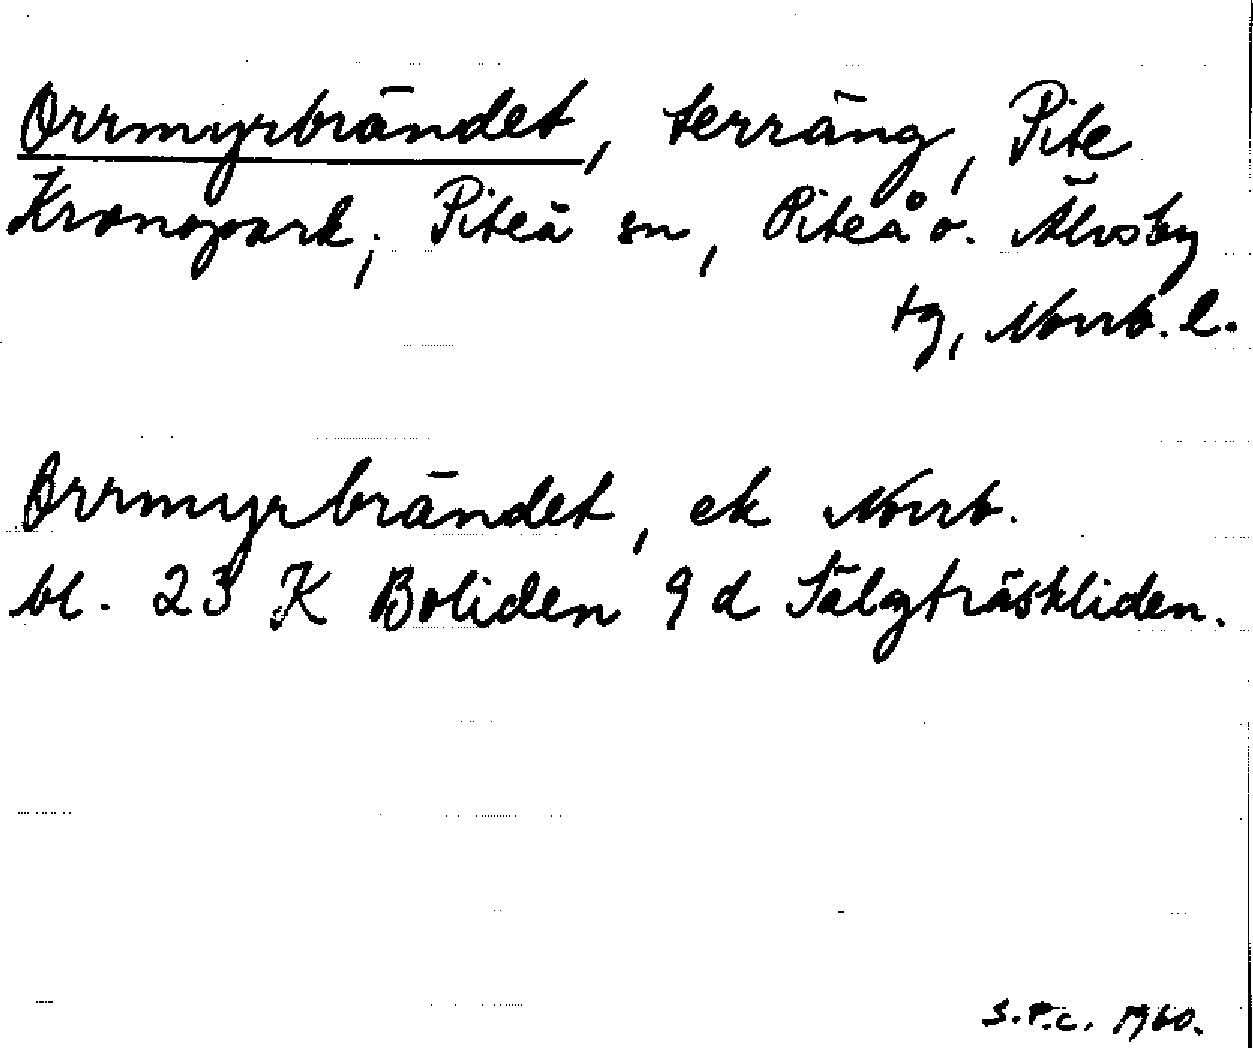 Orrmyrbrändet, terräng, Pite
Kronopark, Piteå sn, Piteå o. Älvsby
tg, Norrb. l.
Orrmyrbrändet, ek Norrb.
bl. 23 K Boliden 9 d Sälgträskliden.
S.P.C. 1960.